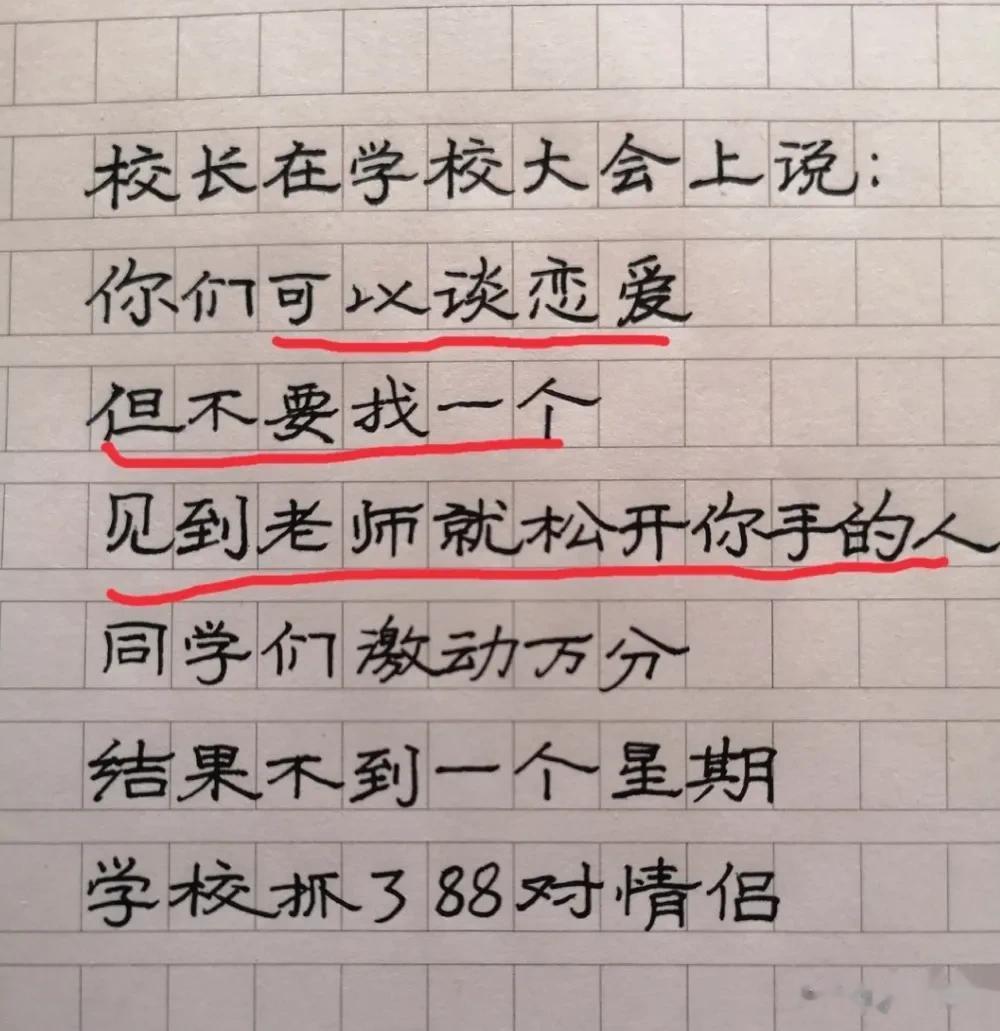 校长在学校大会上说:
你们可以谈恋爱
但不要找一个
见到老师就松开你手的人
同学们激动万分
结果不到一个星期
学校抓了88对情侣